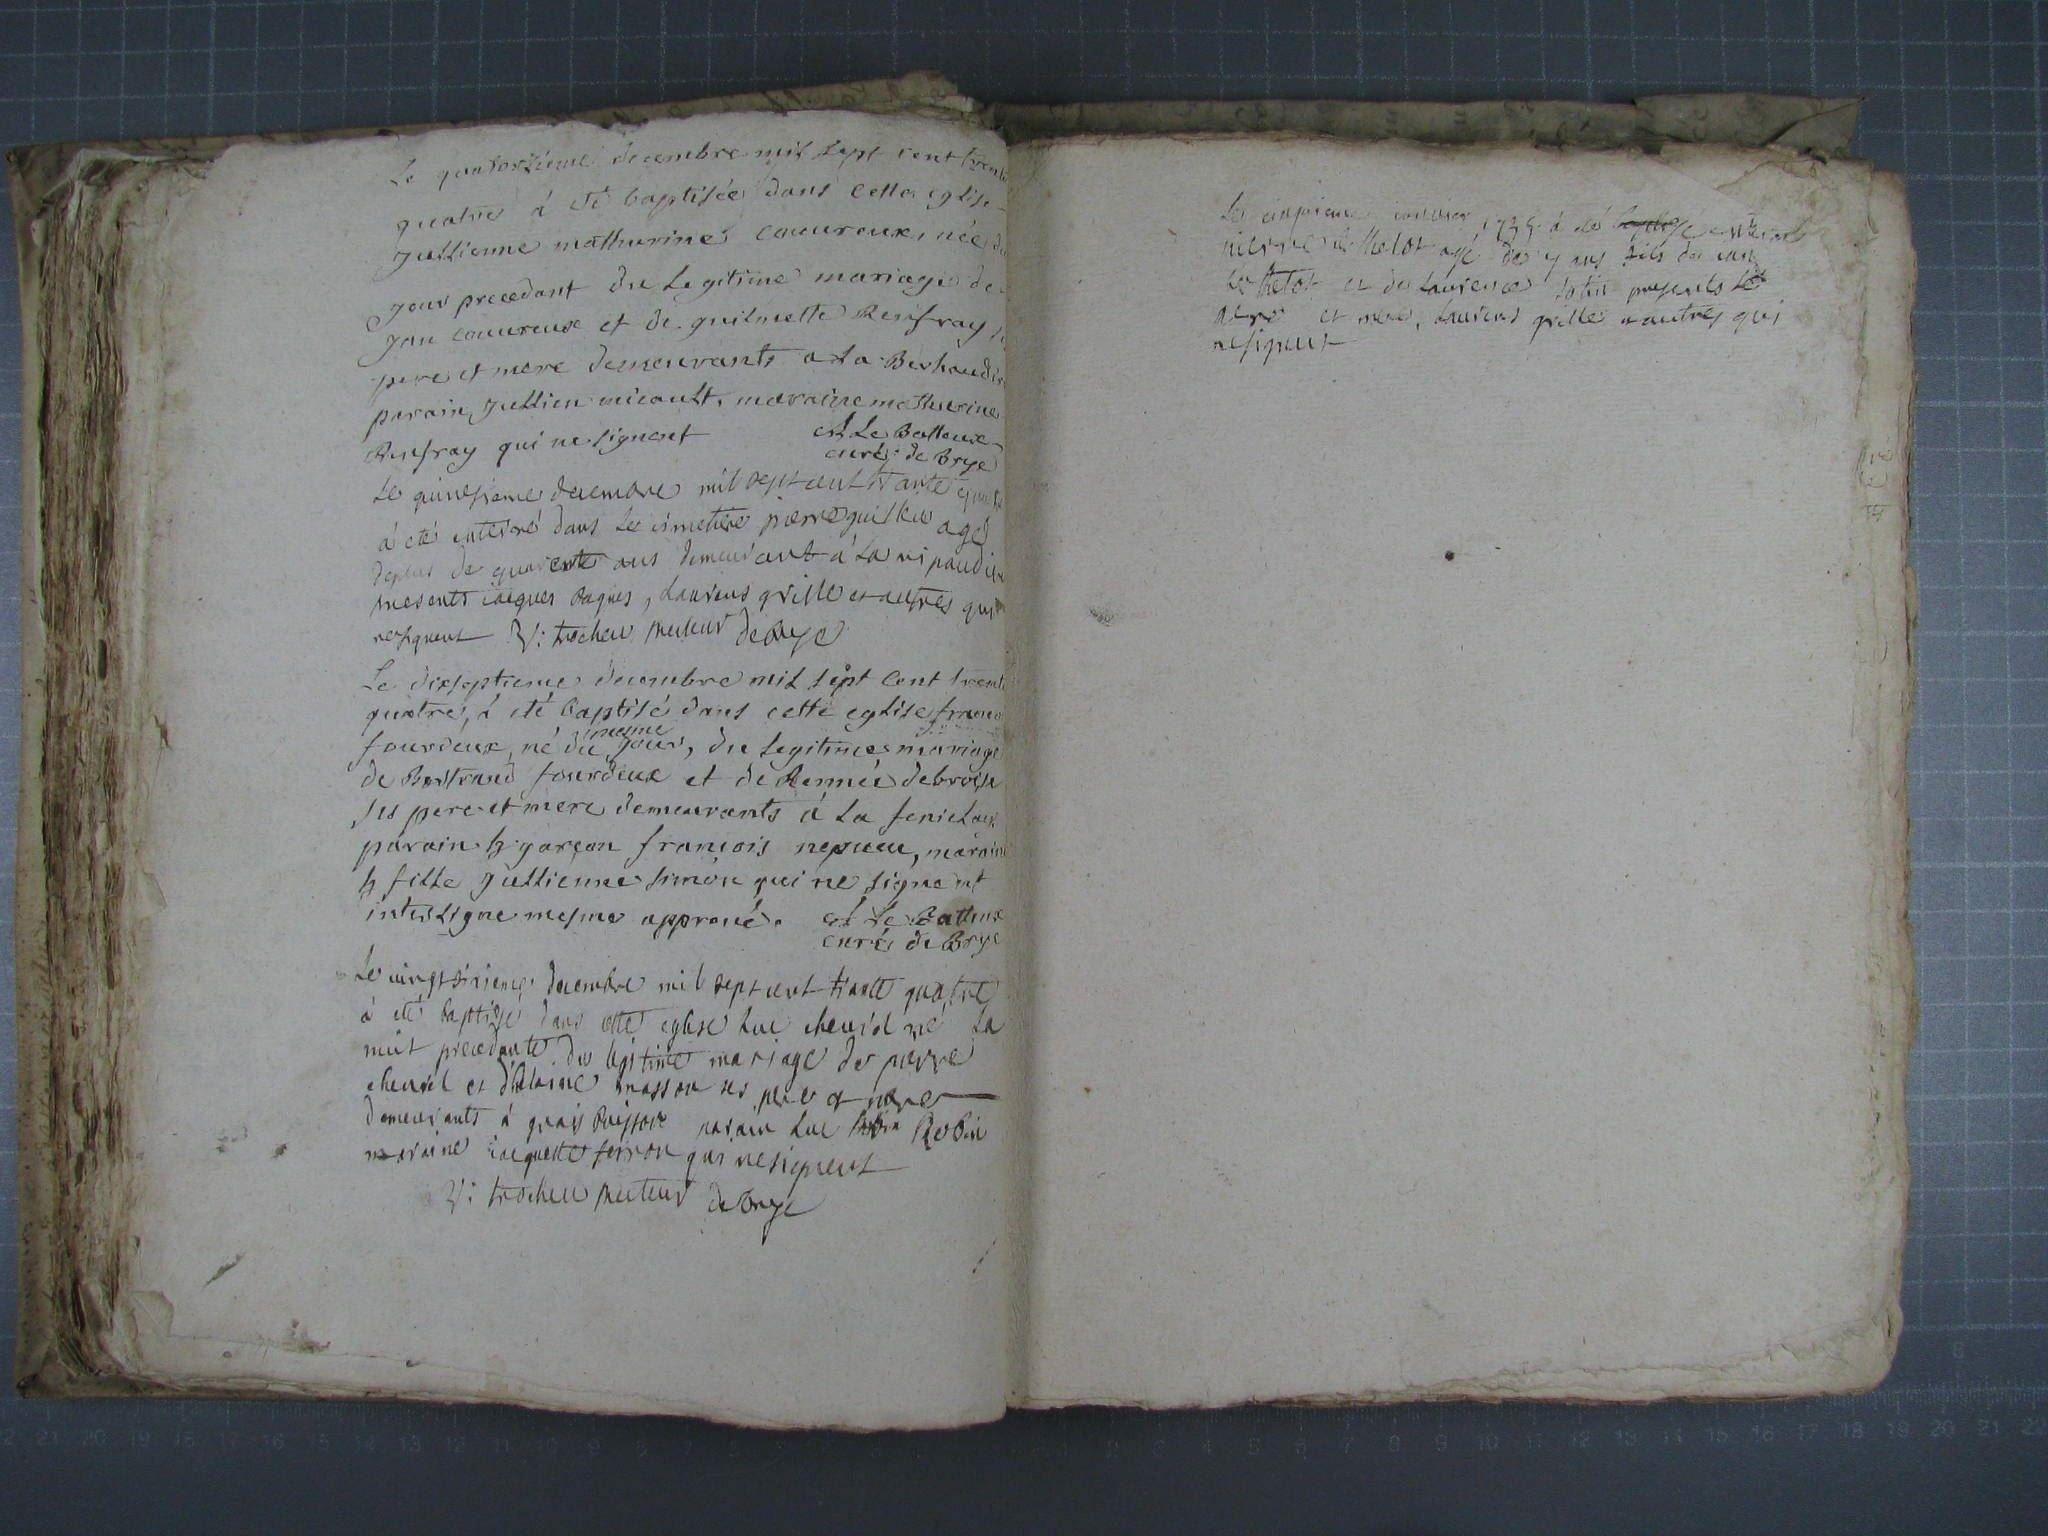 Le quatorzieme decembre mil sept cent trente
quatre à été baptisée dans cette eglise
Jullienne mathurine couureux, née du
jour precedant du Legitime mariage de
Jan couureux et de guilmette Renfray
pere et mere demeurants a La
parain Jullien micault, maraine mathurine
Renfray qui ne signent Le Batteux
curé de Brye
Le quinzieme decembre mil sept cent trante quatre
à eté enterré dans Le cimetiere pierre agé
de quarente ans demeurant à La
presents iacques Pagues, Laurens grille et autres qui
ne signent trocheu Recteur de Brye
Le dixseptieme decembre mil sept cent trente
quatre, à été baptisé dans cette eglise
mesme
fourdeux, né du jour, du legitime mariage
de Bertrand fourdeux et de Rennée debroise
ses pere et mere demeurants à La
parain h garçon françois nepueu, maraine
h fille Jullienne simon qui ne signent
interligne mesme approué. Le Batteux
curé de Brye
Le vingt decembre mil sept cent trante quatre
à eté baptise dans cette eglise Luc cheurel né La
nuit precedante du legitime mariage de pierre
cheurel et masson ses pere et mere
demeurants à parain Luc Robin
maraine iacquette ferron qui ne signent
trocheu Recteur de Brye
Le cinquieme 1735 à eté
pierre agé de ans fils de ian
et de Laurence presents Le
pere et mere, Laurens grille et autres qui
ne signent